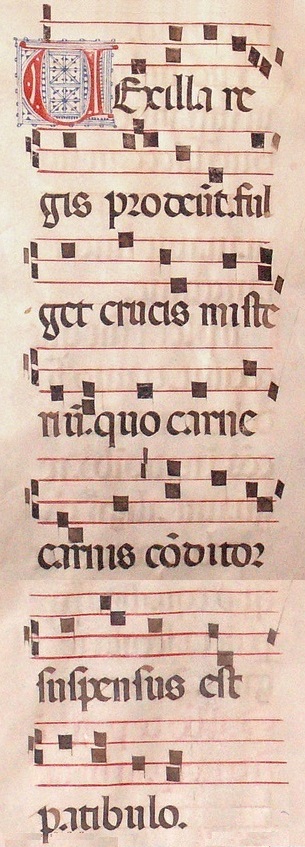 VExilla re
gis prodeūt.ful
get crucis miste
riū.quo carne
carnis cōditor
suspensus est
patibulo.